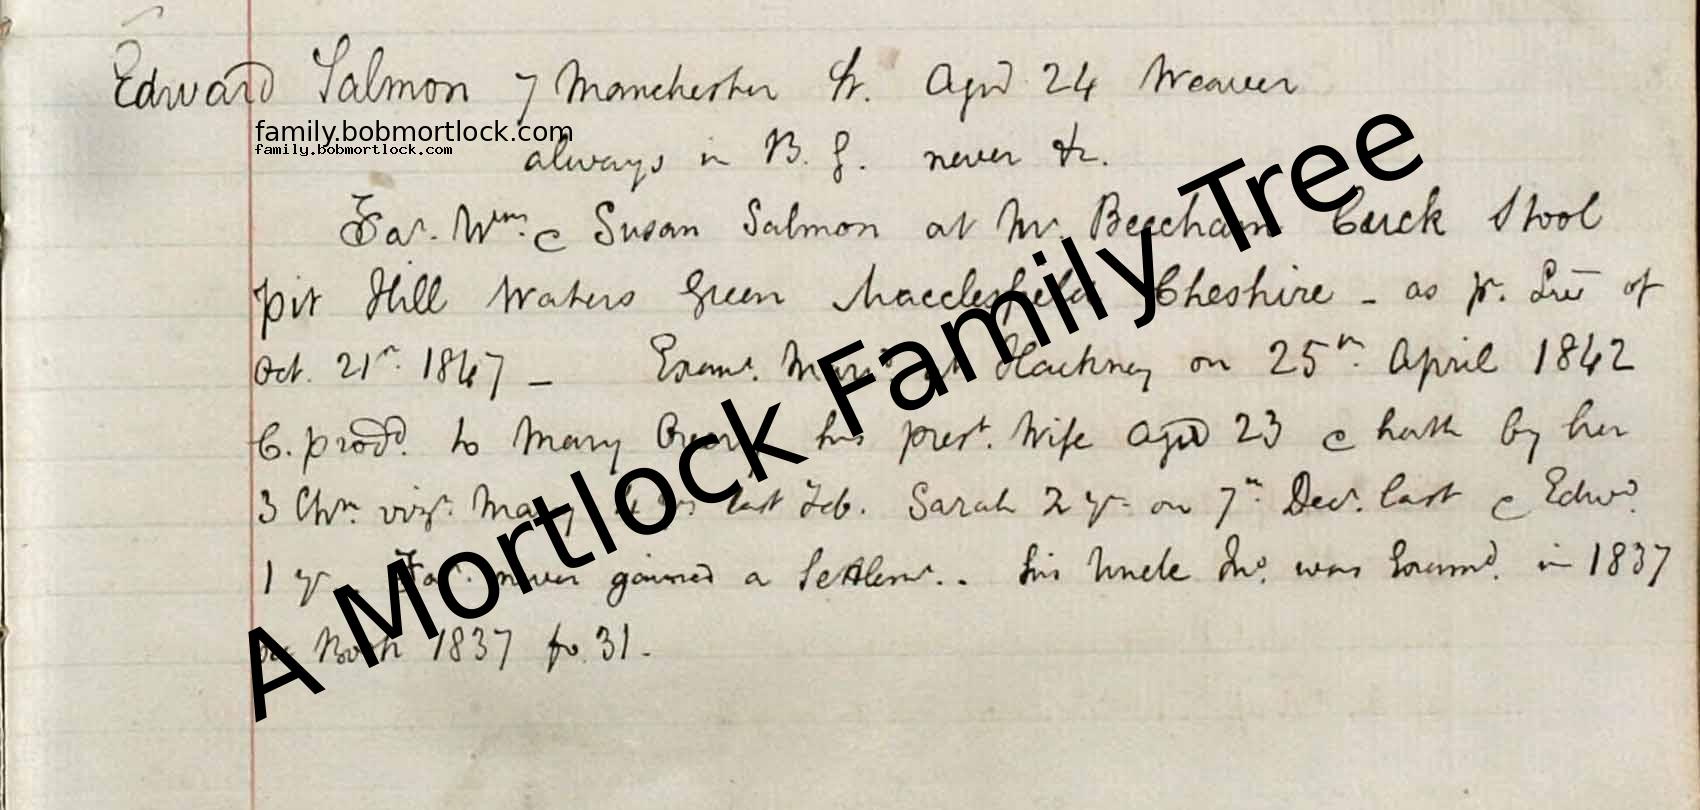 Edward Salmon 7 Manchester St. Aged 24 Weaver
family.bobmortlock.com
family.bobmortlock.com
always in B. G. never &c.
Far. Wm. & Susan Salmon at Mr. Beecham Cuck Stool
pit Hill Waters Green Macclesfield Cheshire - as pr. Lre of
Oct. 21st. 1847 - Examt. Marrd. at Hackney on 25th. April 1842
C. prodd. to Mary his prest. Wife aged 23 & hath by her
3 Chn. vizt. Mary 4 yrs last Feb. Sarah 2 yr. on 7th. Decr. last & Edwd.
1 yr. Far. never gained a Settlemt.. his Uncle Jno. was Examd. in 1837
see Book 1837 fo. 31.
A Mortlock Family Tree